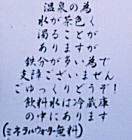 温泉の為
水が茶色く
濁ることが
ありますが
鉄分が多い為で
支障ございません
ごゆっくりどうぞ！
飲料水は冷蔵庫
の中にあります
(ミネラルウォーター無料)